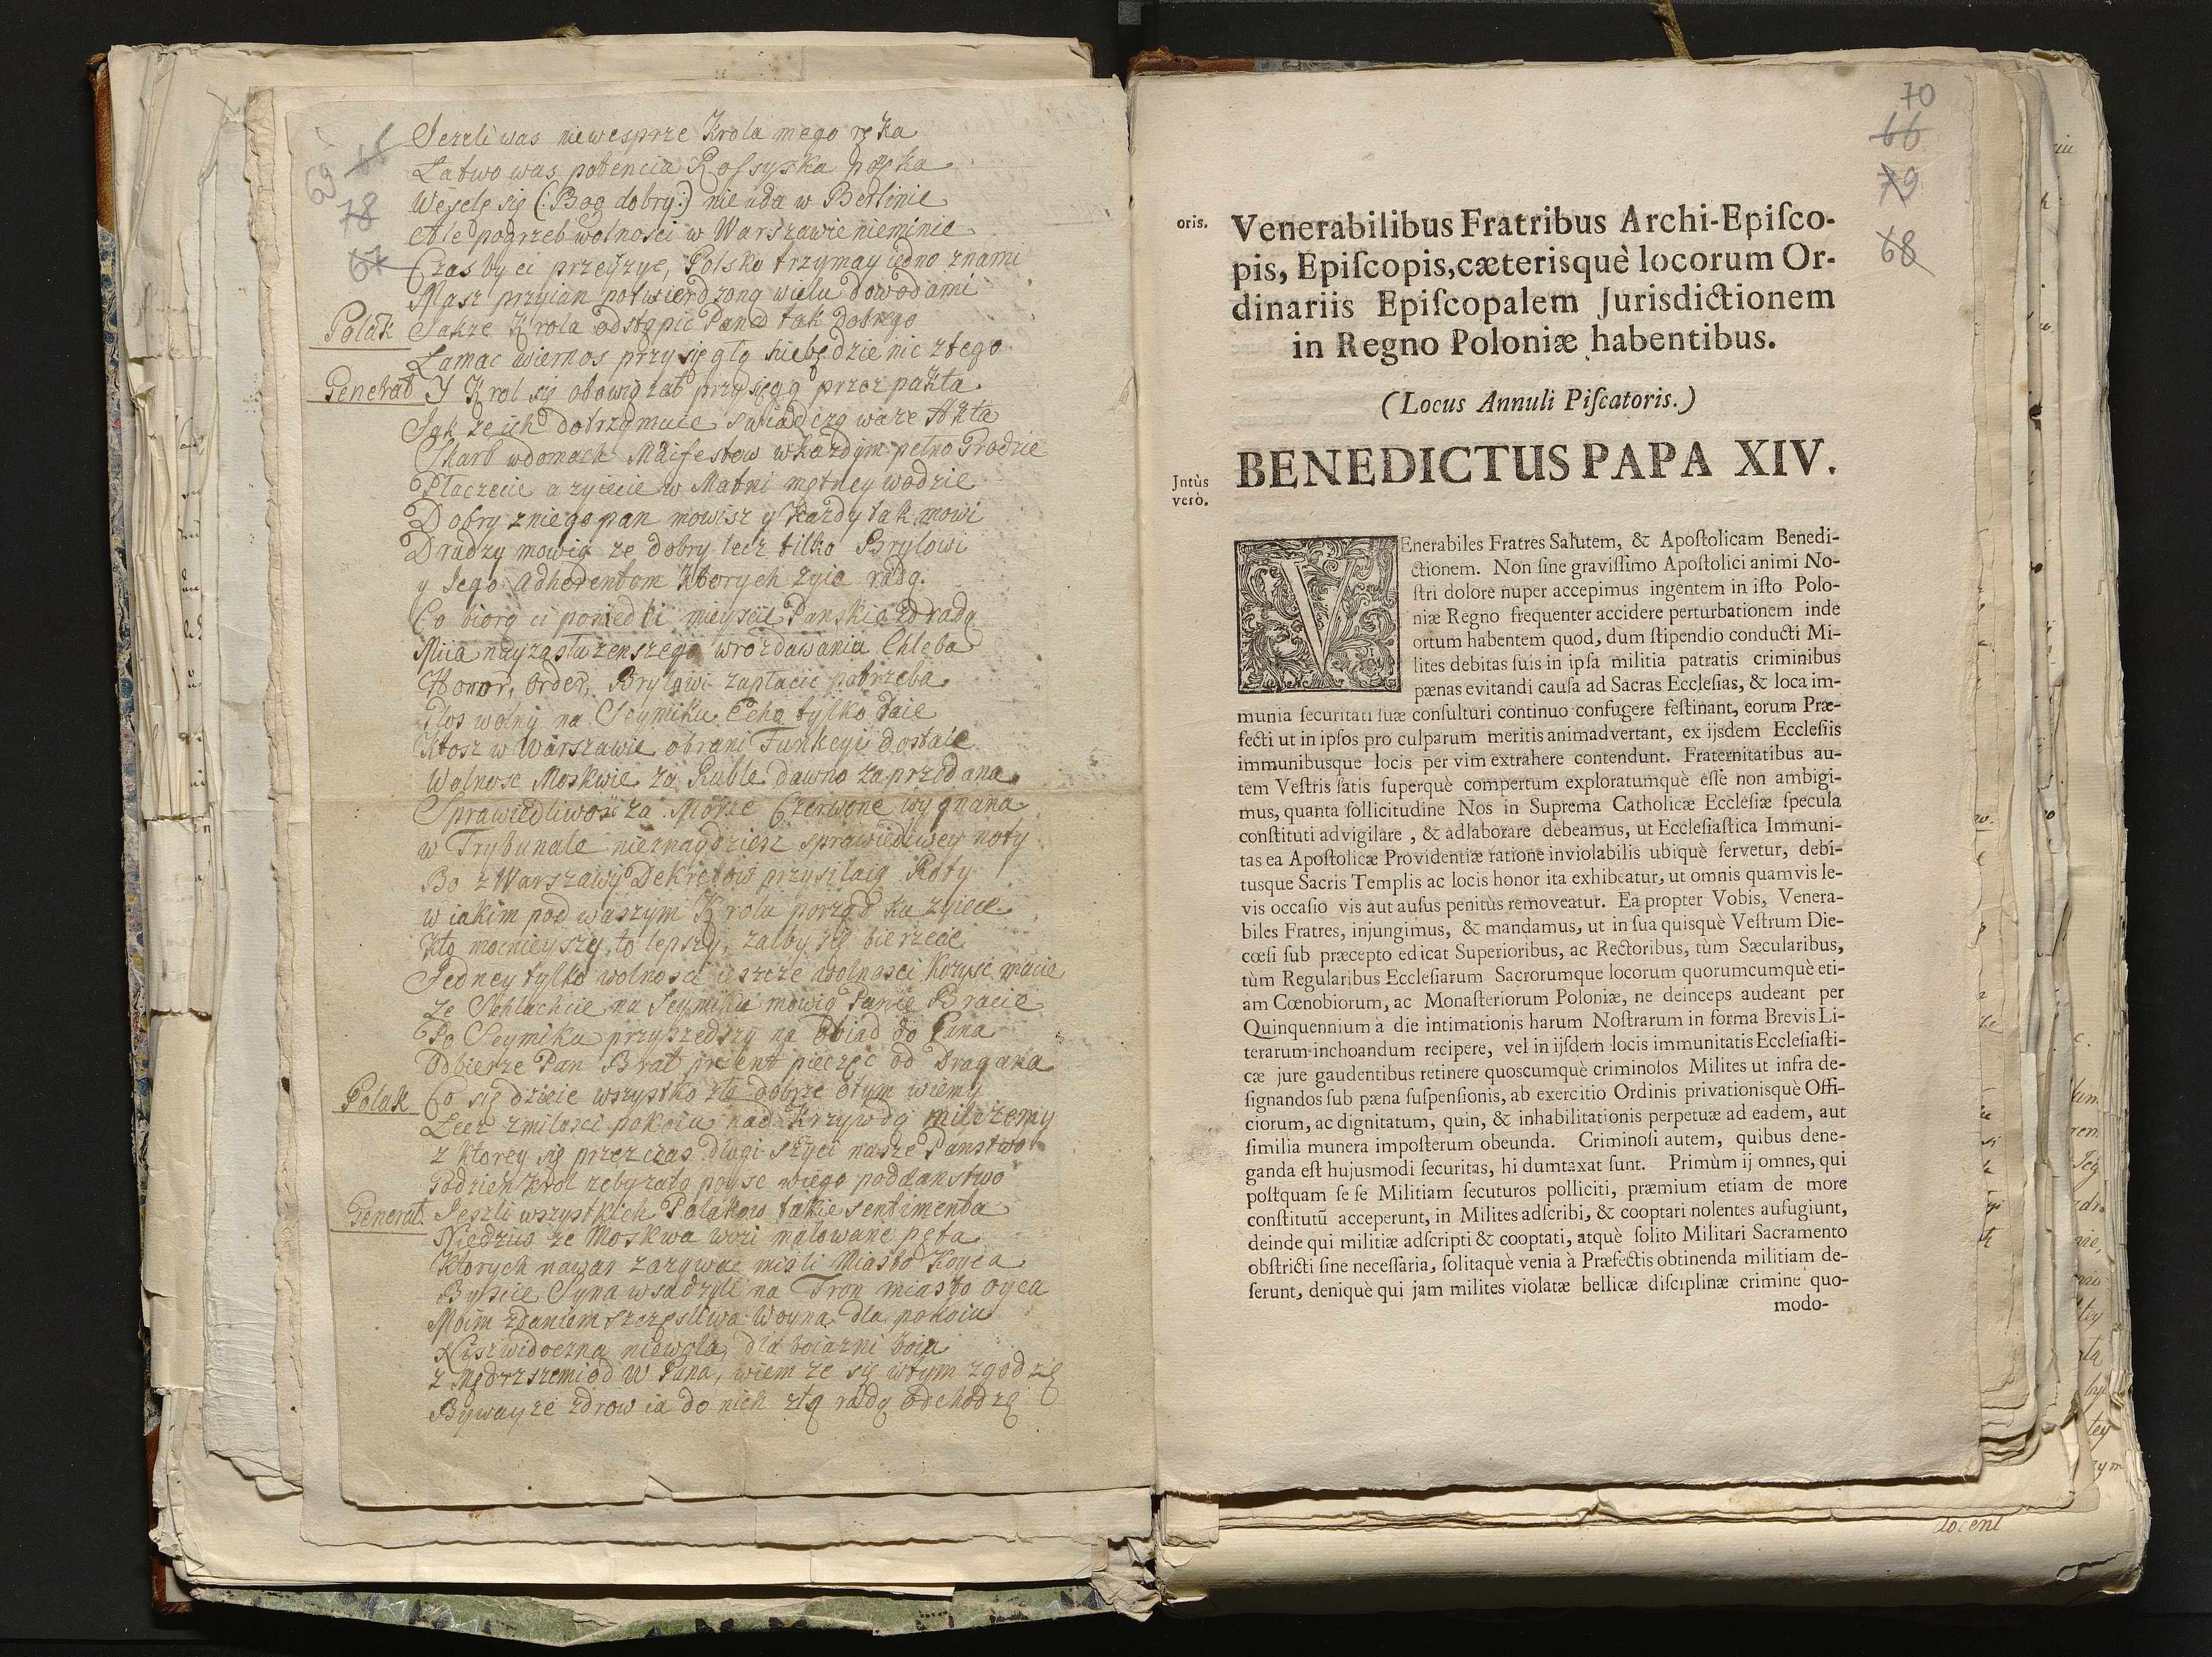 69 66
78
67
Jezeli was niewesprze Krola mego ręka
Łatwo was potencia Rossyska
Wesele się (: Bog dobry :) nie uda w Berlinie
Ale pogrzeb wolnosci w Warszawie nieminie
Czas by ci przeyzyc, Polsko trzymay iedno znami
Masz przyian potwierdzoną wielu dowodami
Polak Jakze Krola odstąpic Pana tak dobrego
Łamac wiernos przysięgłą niebędzie nic złego
Generał Y Krol się obowiązał przysięgą przez pakta
Jak ze ich dotrzymuie swiadczą wasze Akta
Skarb wdomach Maifestow wkazdym pełno Grodzie
Płaczecie a zyiecie w Matni mętney wodzie
Dobry zniego pan mowisz y kazdy tak mowi
Drudzy mowią ze dobry lecz tilko Brylowi
y Jego Adherentom ktorych zyie radą.
Co biorą ci poniedli mieysce Panskie zdradą
Miia nayzasłuzenszego wrozdawaniu Chleba
Honor, Order, Brylowi zapłacic potrzeba
Głos wolny na Seymiku Echo tylko daie
Ktosz w Warszawie obrani Funkcyi dostaie
Wolnosc Moskwie za Ruble dawno zaprzedana
Sprawiedliwosc za Morze Czerwone wygnana
w Trybunale nieznaydziesz sprawiedliwey noty
Bo z Warszawy Dekretow przysilaią Roty
w iakim pod waszym Krolu porządku zyiecie
Kto mocnieyszy to lepszy, załby się bierzecie
Jedney tylko wolnosci ieszcze wolnosci kozysc macie
ze Schlachcie na Seymiku mowią Panie Bracie
Po Seymiku przyszedszy na Obiad do Pana
Odbierze Pan Brat prezent piesczęc od Dragana
Polak Co się dzieie wszystko zle dobrze otym wiemy
Lecz zmiłosci pokoiu nad Krzywdą milczemy
z ktorey się przez czas dlugi szyci nasze Panstwo
Godzien Krol zeby zato pojsc wiego poddanstwo
Generał Jeszli wszystkich Polakow takie sentimenta
Niedziw ze Moskwa wozi malowane pęta
Ktorych nawas zazywac misli Miasto Koyca
Byscie Syna wsadzyli na Tron miasto oyca
Moim zdaniem szczęsliwa Woyna dla pokoiu
Nisz widoczna niewola, dla boiazni boiu
z Mędrszemi od W Pana, wiem ze się wtym zgodzię
Bywayze zdrow ia do nich złą radą Odchodzę
70
66
79
68
oris. Venerabilibus Fratribus Archi-Episco-
pis, Episcopis, cæterisquè locorum Or-
dinariis Episcopalem Jurisdictionem
in Regno Poloniæ habentibus.
(Locus Annuli Piscatoris.)
BENEDICTUS PAPA XIV.
Jntùs
verò.
VEnerabiles Fratres Salutem, & Apostolicam Benedi-
ctionem. Non sine gravissimo Apostolici animi No-
stri dolore nuper accepimus ingentem in isto Polo-
niæ Regno frequenter accidere perturbationem inde
ortum habentem quod, dum stipendio conducti Mi-
lites debitas suis in ipsa militia patratis criminibus
pænas evitandi causa ad Sacras Ecclesias, & loca im-
munia securitati suæ consulturi continuo confugere festinant, eorum Præ-
fecti ut in ipsos pro culparum meritis animadvertant, ex ijsdem Ecclesiis
immunibusque locis per vim extrahere contendunt. Fraternitatibus au-
tem Vestris satis superquè compertum exploratumquè esse non ambigi-
mus, quanta sollicitudine Nos in Suprema Catholicæ Ecclesiæ specula
constituti advigilare, & adlaborare debeamus, ut Ecclesiastica Immuni-
tas ea Apostolicæ Providentiæ ratione inviolabilis ubiquè servetur, debi-
tusque Sacris Templis ac locis honor ita exhibeatur, ut omnis quamvis le-
vis occasio vis aut ausus penitùs removeatur. Ea propter Vobis, Venera-
biles Fratres, injungimus, & mandamus, ut in sua quisquè Vestrum Die-
cœsi sub præcepto edicat Superioribus, ac Rectoribus, tùm Sæcularibus,
tùm Regularibus Ecclesiarum Sacrorumque locorum quorumcumquè eti-
am Cœnobiorum, ac Monasteriorum Poloniæ, ne deinceps audeant per
Quinquennium à die intimationis harum Nostrarum in forma Brevis Li-
terarum inchoandum recipere, vel in ijsdem locis immunitatis Ecclesiasti-
cæ jure gaudentibus retinere quoscumquè criminosos Milites ut infra de-
signandos sub pæna suspensionis, ab exercitio Ordinis privationisquè Offi-
ciorum, ac dignitatum, quin, & inhabilitationis perpetuæ ad eadem, aut
similia munera imposterum obeunda. Criminosi autem, quibus dene-
ganda est hujusmodi securitas, hi dumtaxat sunt. Primùm ij omnes, qui
postquam se se Militiam secuturos polliciti, præmium etiam de more
constitutũ acceperunt, in Milites adscribi, & cooptari nolentes aufugiunt,
deinde qui militiæ adscripti & cooptati, atquè solito Militari Sacramento
obstricti sine necessaria, solitaquè venia à Præfectis obtinenda militiam de-
serunt, deniquè qui jam milites violatæ bellicæ disciplinæ crimine quo-
modo-
docent